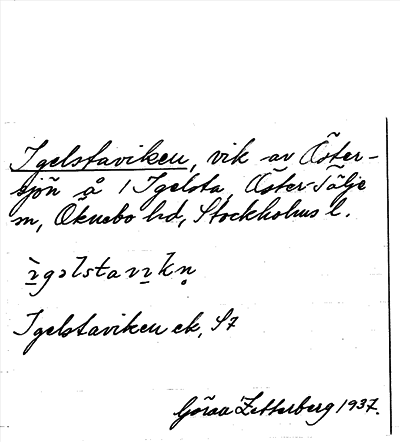 Igelstaviken, vik av Öster-
sjön å 1 Igelsta, Öster-Tälje
sn, Öknebo hd, Stockholms l.
ìgəlstavɪkn̥
Igelstaviken ek, 57
Göran Zetterberg 1937.